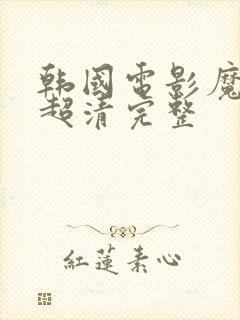 韩國電影魔
超清完整
紅蓮素心